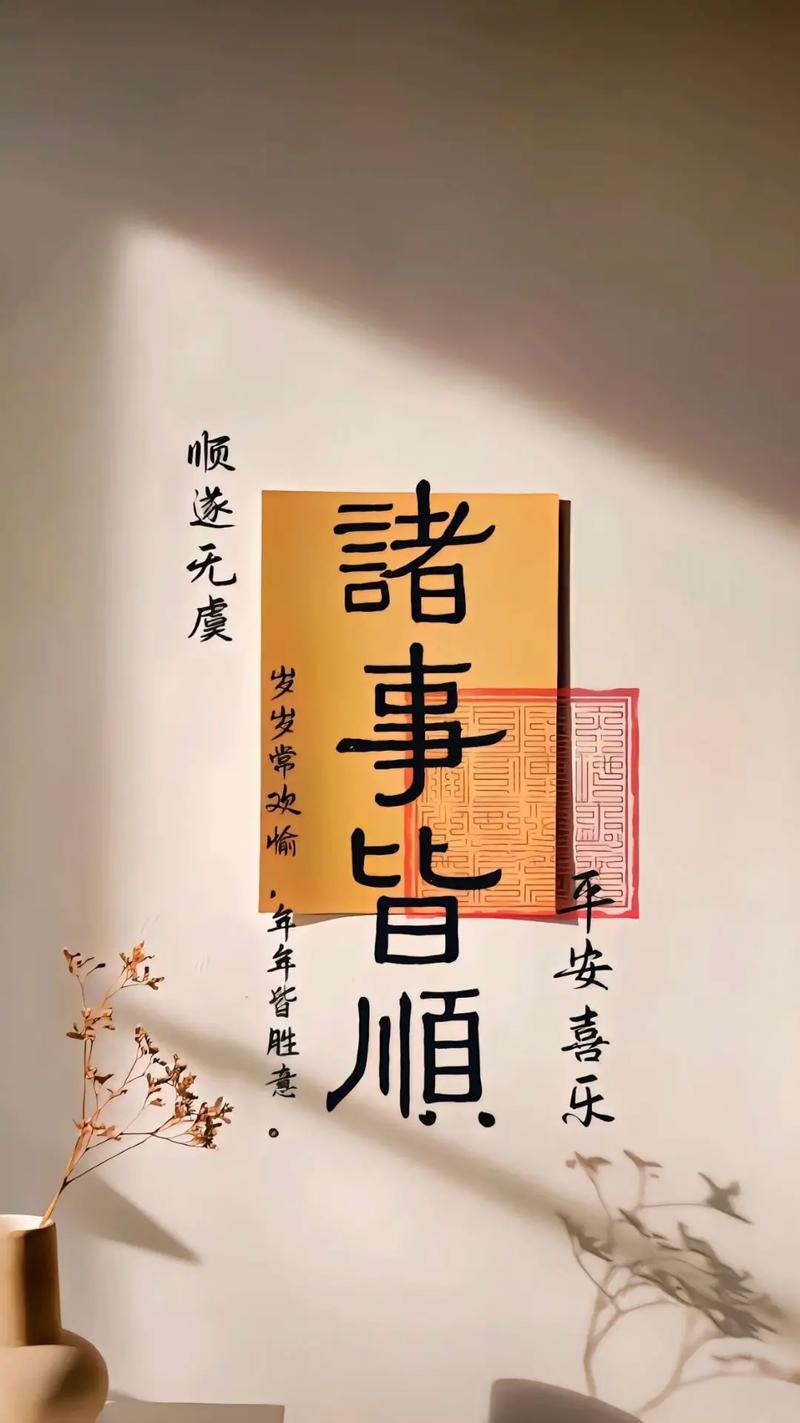 顺遂无虞
岁岁常欢愉，年年皆胜意。
諸事皆順
平安喜乐